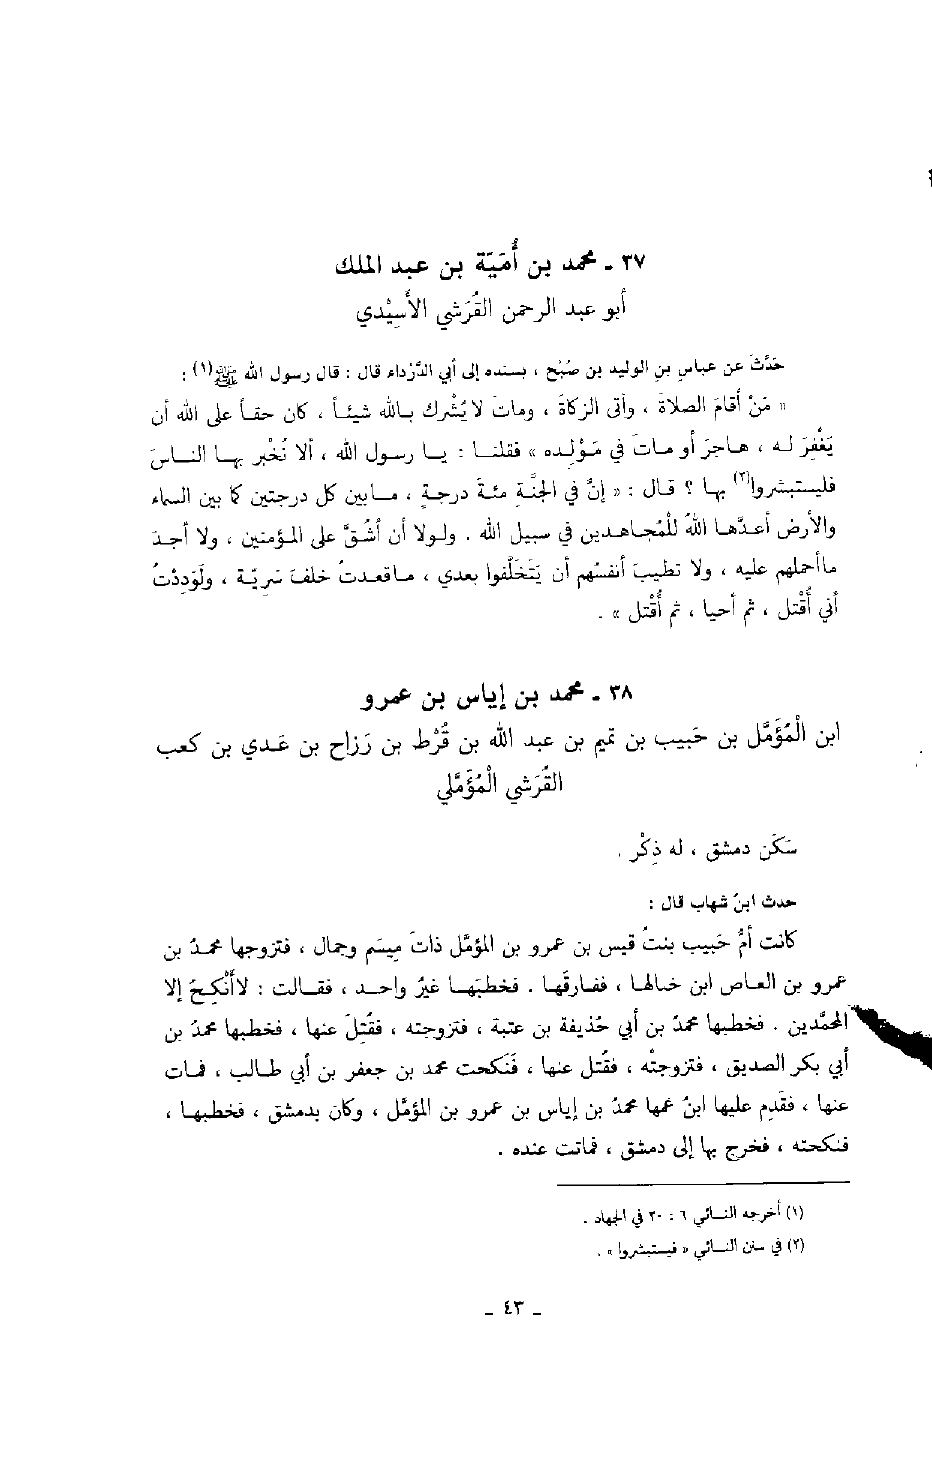 ٣٧ ـ محمد بن أُمَيّة بن عبد الملك
أبو عبد الرحمن القُرَشي الأُسيْدي
حَدَّثَ عن عباسِ بن الوليد بن صُبْح ، بسنده إلى أبي الدَّرْداء قال : قال رسول الله ﷺ(١) :
« مَنْ أقامَ الصلاةَ ، وآتى الزكاةَ ، وماتَ لا يُشْرك بالله شيئاً ، كان حقاً على الله أن
يَغْفِرَ له ، هاجرَ أو ماتَ في مَوْلِده » فقلنا : يا رسول الله ، ألا نُخْبر بها الناسَ
فليستبشروا(٢) بها ؟ قال : « إنَّ في الجنَّةِ مئةَ درجةٍ ، مابين كل درجتين كما بين السماء
والأرض أعدَّها اللهُ للمُجاهدين في سبيل الله . ولولا أن أشُقَّ على المؤمنين ، ولا أجدَ
ماأحملهم عليه ، ولا تطيبَ أنفسُهم أن يَتَخَلَّفوا بعدي ، ماقعدتُ خلفَ سَرِيّة ، ولَوَدِدْتُ
أني أُقْتل ، ثم أحيا ، ثم أُقْتل » .
٣٨ ـ محمد بن إياس بن عمرو
ابن الْمُؤَمَّل بن حَبيب بن تميم بن عبد الله بن قُرْط بن رَزاح بن عَدي بن كعب
القُرَشي الْمُؤَمَّلي
سَكَن دمشق ، له ذِكْر .
حدث ابنُ شهاب قال :
كانت أمُّ حَبيب بنتُ قيس بن عمرو بن المؤمَّل ذاتَ مِيسَم وجمال ، فتزوجها محمدُ بن
عمرو بن العاص ابن خالها ، ففارقَها . فخطبَها غيرُ واحد ، فقالت : لاأَنْكِحُ إلا
المحمَّدين . فخطبها محمدُ بن أبي حُذيفة بن عتبة ، فتزوجته ، فقُتِلَ عنها ، فخطبها محمدُ بن
أبي بكر الصديق ، فتزوجتْه ، فقُتل عنها ، فَنكحت محمد بن جعفر بن أبي طالب ، فمات
عنها ، فقَدِم عليها ابنُ عمها محمدُ بن إياس بن عمرو بن المؤمَّل ، وكان بدمشق ، فخطبها ،
فنكحته ، فخرج بها إلى دمشق ، فماتت عنده .
(١) أخرجه النسائي ٦ : ٢٠ في الجهاد .
(٢) في سنن النسائي « فيستبشروا » .
ـ ٤٣ ـ